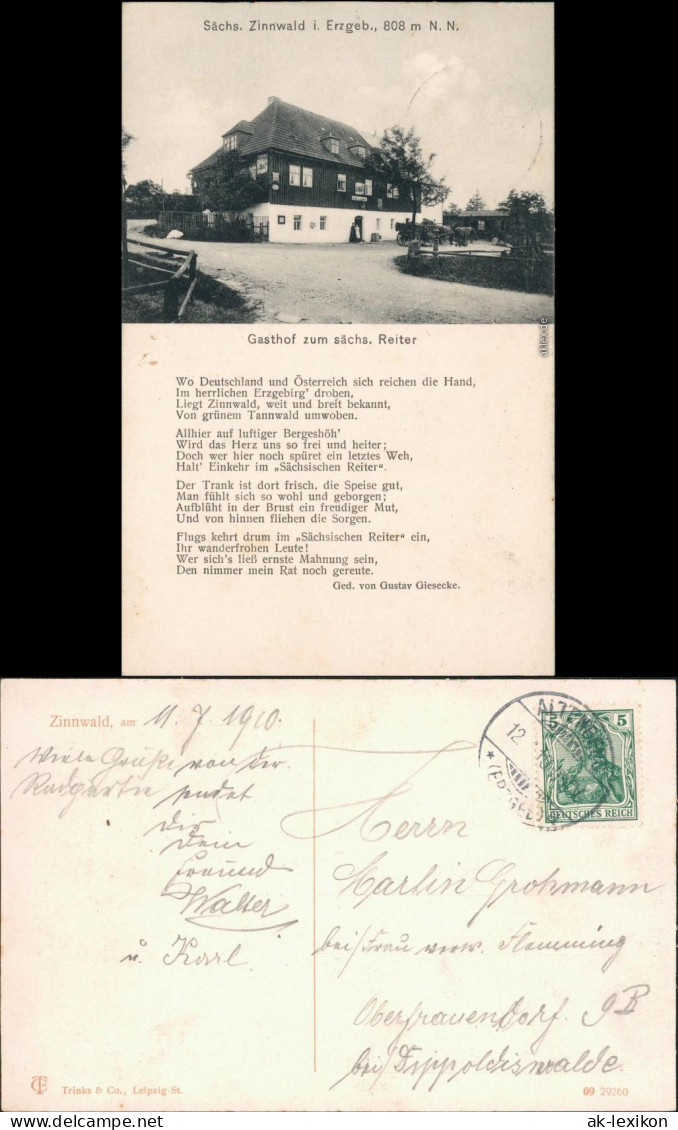 Sächs. Zinnwald i. Erzgeb., 808 m N. N.
aklex.de
Gasthof zum sächs. Reiter
Wo Deutschland und Österreich sich reichen die Hand,
Im herrlichen Erzgebirg' droben,
Liegt Zinnwald, weit und breit bekannt,
Von grünem Tannwald umwoben.
Allhier auf luftiger Bergeshöh'
Wird das Herz uns so frei und heiter;
Doch wer hier noch spüret ein letztes Weh,
Halt' Einkehr im „Sächsischen Reiter“.
Der Trank ist dort frisch, die Speise gut,
Man fühlt sich so wohl und geborgen;
Aufblüht in der Brust ein freudiger Mut,
Und von hinnen fliehen die Sorgen.
Flugs kehrt drum im „Sächsischen Reiter“ ein,
Ihr wanderfrohen Leute!
Wer sich's ließ ernste Mahnung sein,
Den nimmer mein Rat noch gereute.
Ged. von Gustav Giesecke.
Zinnwald, am 11. 7. 1910.
Viele Grüße von der
Radpartie sendet
dir
dein
Freund
Walter
u. Karl.
5 5
DEUTSCHES REICH
12
Herrn
Martin Grohmann
bei Frau verw. Flemming
Oberfrauendorf. 9B
bei Dippoldiswalde.
Trinks & Co., Leipzig-St.
09 29260
ak-lexikon